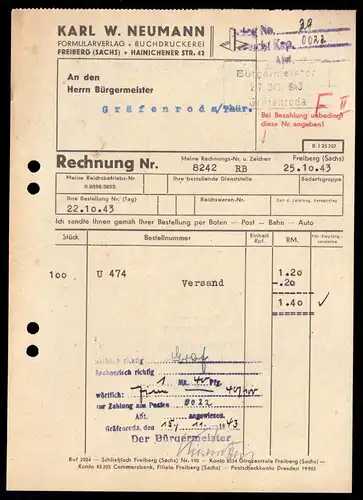 KARL W. NEUMANN
FORMULARVERLAG • BUCHDRUCKEREI
FREIBERG (SACHS) • HAINICHENER STR. 42
Beleg No. 39
0022
Abt.
An den
Herrn Bürgermeister
Gräfenroda/Thür.
Bürgermeister
27. OKT. 1943
Gräfenroda
F II
Bei Bezahlung unbedingt
diese Nr. angeben!
Rechnung Nr.
Meine Rechnungs-Nr. u. Zeichen
8242 RB
Freiberg (Sachs)
25.10.43
Meine Reichsbetriebs-Nr.
Ihre bestellende Dienststelle
Bedarfsgruppe
Ihre Bestellung Nr. (Tag)
22.10.43
Reichswaren-Nr.
Ich sandte gemäß Ihrer Bestellung per Boten — Post — Bahn — Auto
Stück
Bestellnummer
Einheit
Rpf.
RM.
100
U 474
1.20
Versand
-.20
1.40 ✓
Sachlich richtig
Rechnerisch richtig
1 Mk. 40 Pfg.
wörtlich:
zur Zahlung aus Posten 0022
Abt. angewiesen.
Gräfenroda, den 15/11. 1943
Der Bürgermeister
Ruf 3024 — Schließfach Freiberg (Sachs) Nr. 190 — Konto 8354 Girozentrale Freiberg (Sachs) —
Konto 85 205 Commerzbank, Filiale Freiberg (Sachs) — Postscheckkonto Dresden 19 965